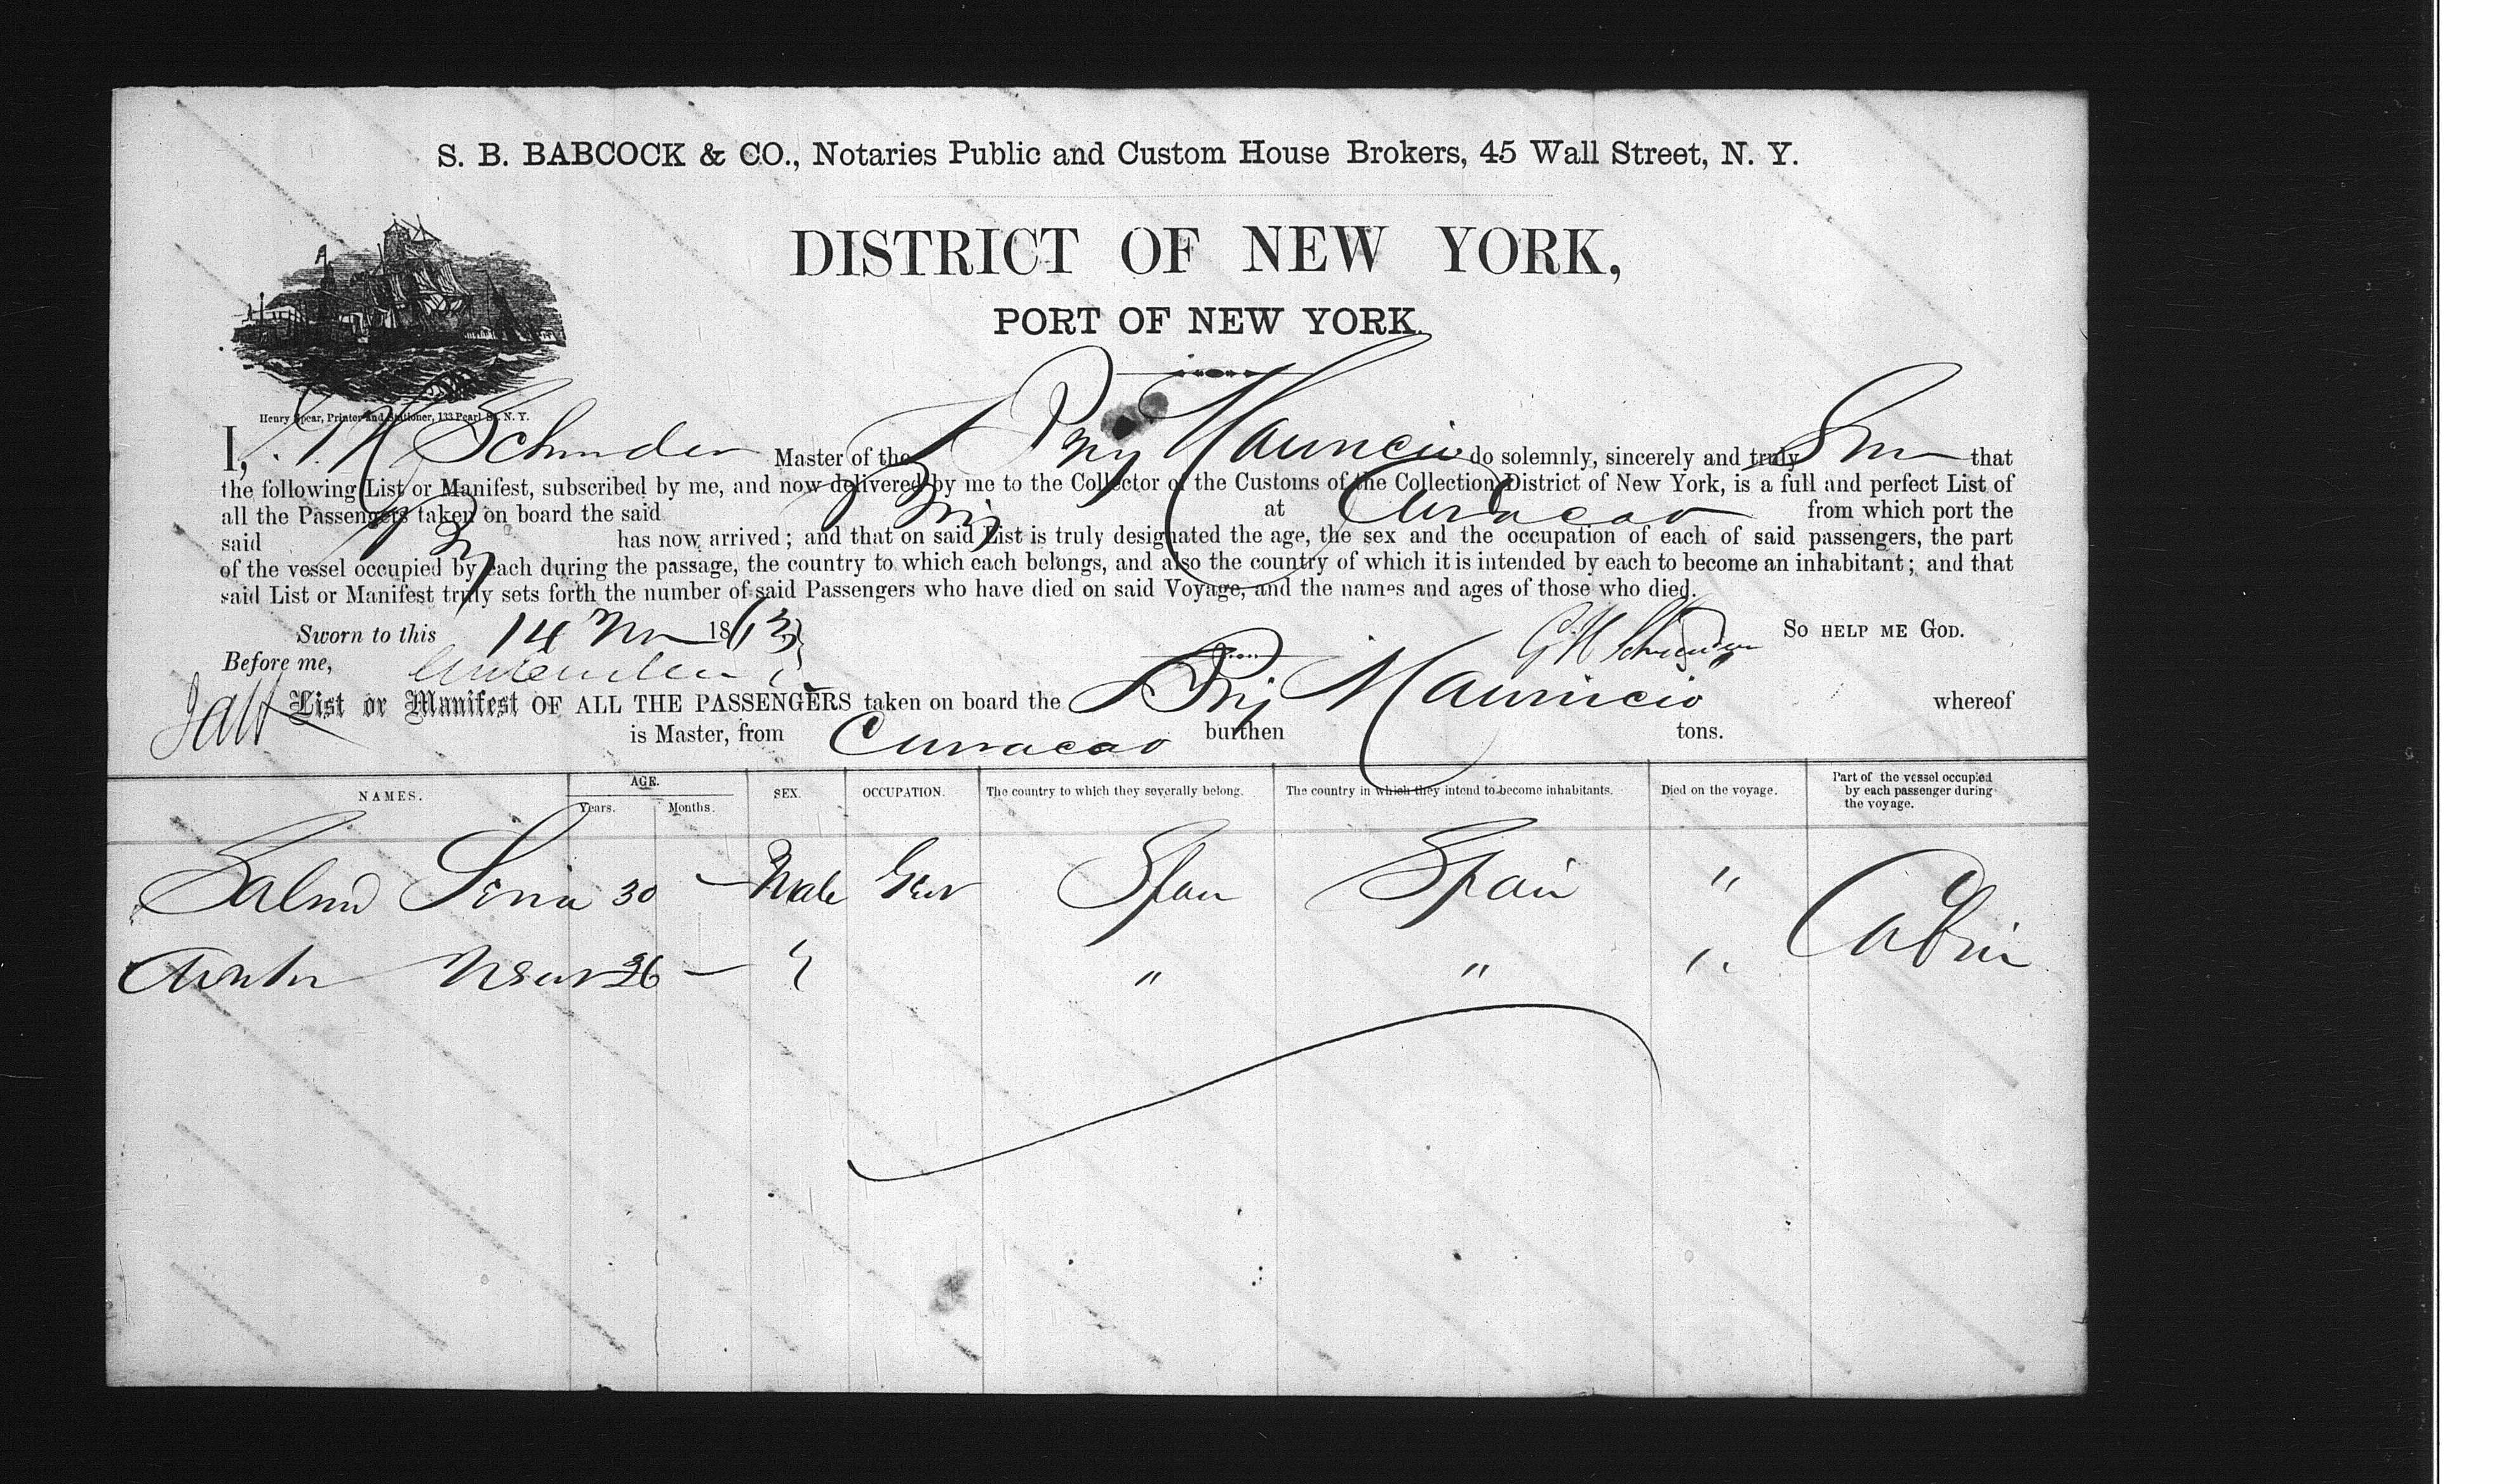 S. B. BABCOCK & CO., Notaries Public and Custom House Brokers, 45 Wall Street, N. Y.
DISTRICT OF NEW YORK,
PORT OF NEW YORK.
Henry Spear, Printer and Stationer, 133 Pearl St. N. Y.
I, Master of the Brig Mauricio do solemnly, sincerely and truly that
the following List or Manifest, subscribed by me, and now delivered by me to the Collector of the Customs of the Collection District of New York, is a full and perfect List of
all the Passengers taken on board the said Brig at Curacao from which port the
said Brig has now arrived; and that on said List is truly designated the age, the sex and the occupation of each of said passengers, the part
of the vessel occupied by each during the passage, the country to which each belongs, and also the country of which it is intended by each to become an inhabitant; and that
said List or Manifest truly sets forth the number of said Passengers who have died on said Voyage, and the names and ages of those who died.
Sworn to this 14 1863 So HELP ME GOD.
Before me,
List or Manifest OF ALL THE PASSENGERS taken on board the Brig Mauricio whereof
is Master, from Curacao burthen tons.
NAMES. AGE. SEX. OCCUPATION. The country to which they severally belong. The country in which they intend to become inhabitants. Died on the voyage. Part of the vessel occupied by each passenger during the voyage.
Years. Months.
30 — Male Spain Spain " Cabin
— " " "